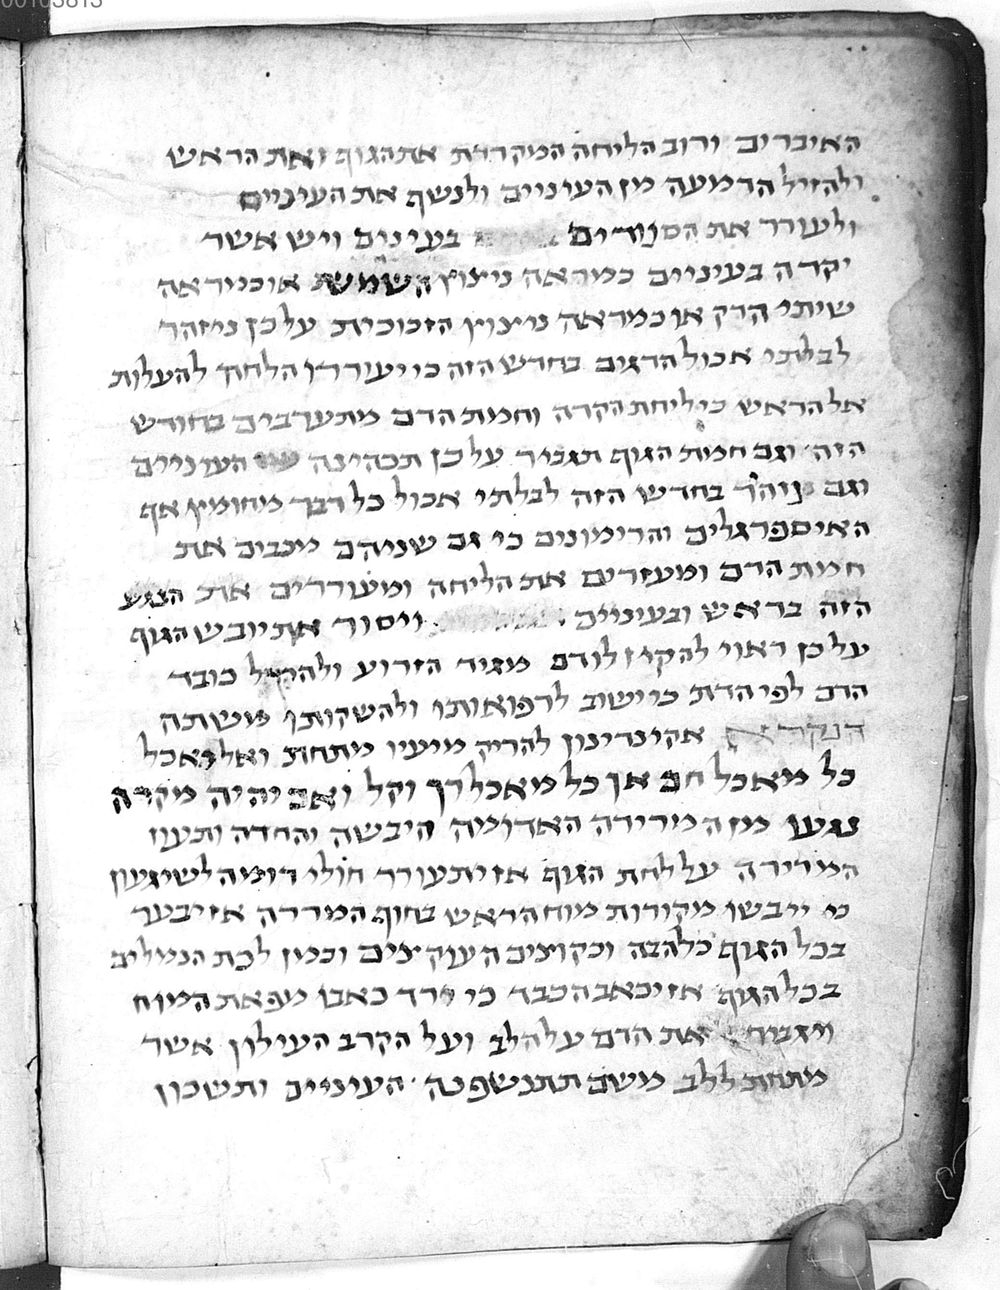 האיברים ורוב הליחה המקררת את הגוף ואת הראש
ולהזיל הדמעה מן העיניים ולנשף את העיניים
ולעורר את הסנורים בעינים ויש אשר
יקרה בעיניים כמראה ניצוץ השמש או כמראה
שיתי הרק או כמראה ניצוץ הזכוכית על כן ניזהר
לבלתי אכול הדגים בחדש הזה כי יעוררו הלחה להעלות
אל הראש כי ליחת הקרה וחמת הדם מתערבים בחודש
הזה וגם חמת הגוף תגביר על כן תכהינה העיניים
וגם נזהר בחדש הזה לבלתי אכול כל דבר מחומץ אף
האיספרגלים והרימונים כי גם שניהם מכבים את
חמת הדם ומעזרים את הליחה ומעוררים את הנגע
הזה בראש ובעיניים ויסור את יובש הגוף
על כן ראוי להקיז לו דם מגיד הזרוע ולהקל כובד
הדם לפי הדת כו ישוב לרפואותו ולהשקותו משתה
הנקרא אקינדינון להריק מיעיו מתחת ואל יאכל
כל מאכל חם אך כל מאכל רך וקל ואם יהיה מקרה
נגעו מן המרירה האדומה היבשה והחדה ותעוז
המרירה על לחת הגוף אז יתעורר חולי דומה לשיגעון
כי ייבשו מקורות מוח הראש בחוף המררה אז יבער
בכל הגוף כלהבה וכקוצים העוקצים וכמו לכת הנמלים
בכל הגוף אז יכאב הכבד כי ירד כאבו מפאת המוח
ויגבור את הדם על הלב ועל הקרב העילון אשר
מתחת ללב משם תתנשפנה העיניים ותשכון